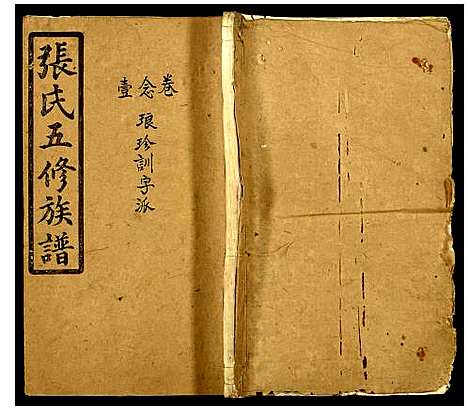 張氏五修族譜
卷
念
壹
琅珍訓字派